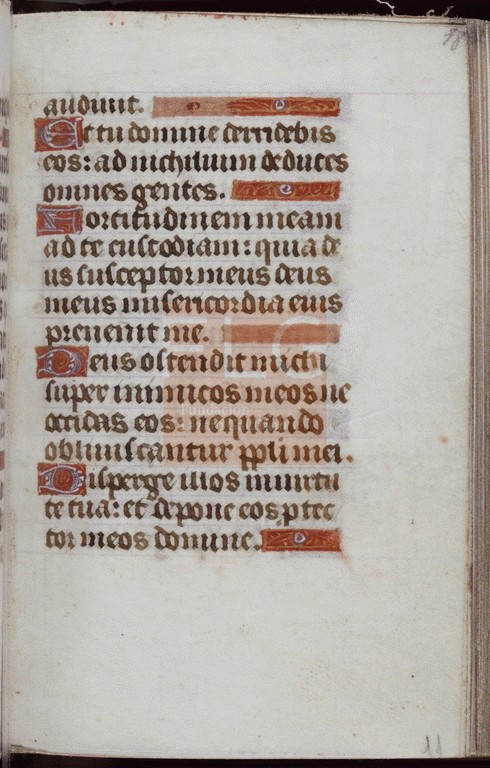 18
audiuit.
Et tu domine derridebis
eos: ad nichilum deduces
omnes gentes.
Fortitudinem meam
ad te custodiam: quia de
us susceptor meus deus
meus misericordia eius
preueniit me.
Deus ostendit michi
super inimicos meos ne
occidas eos: nequando
obliuiscantur ppli mei.
Disperge illos in uirtu
te tua: et depone eos ptec
tor meos domine.
Fundación
11